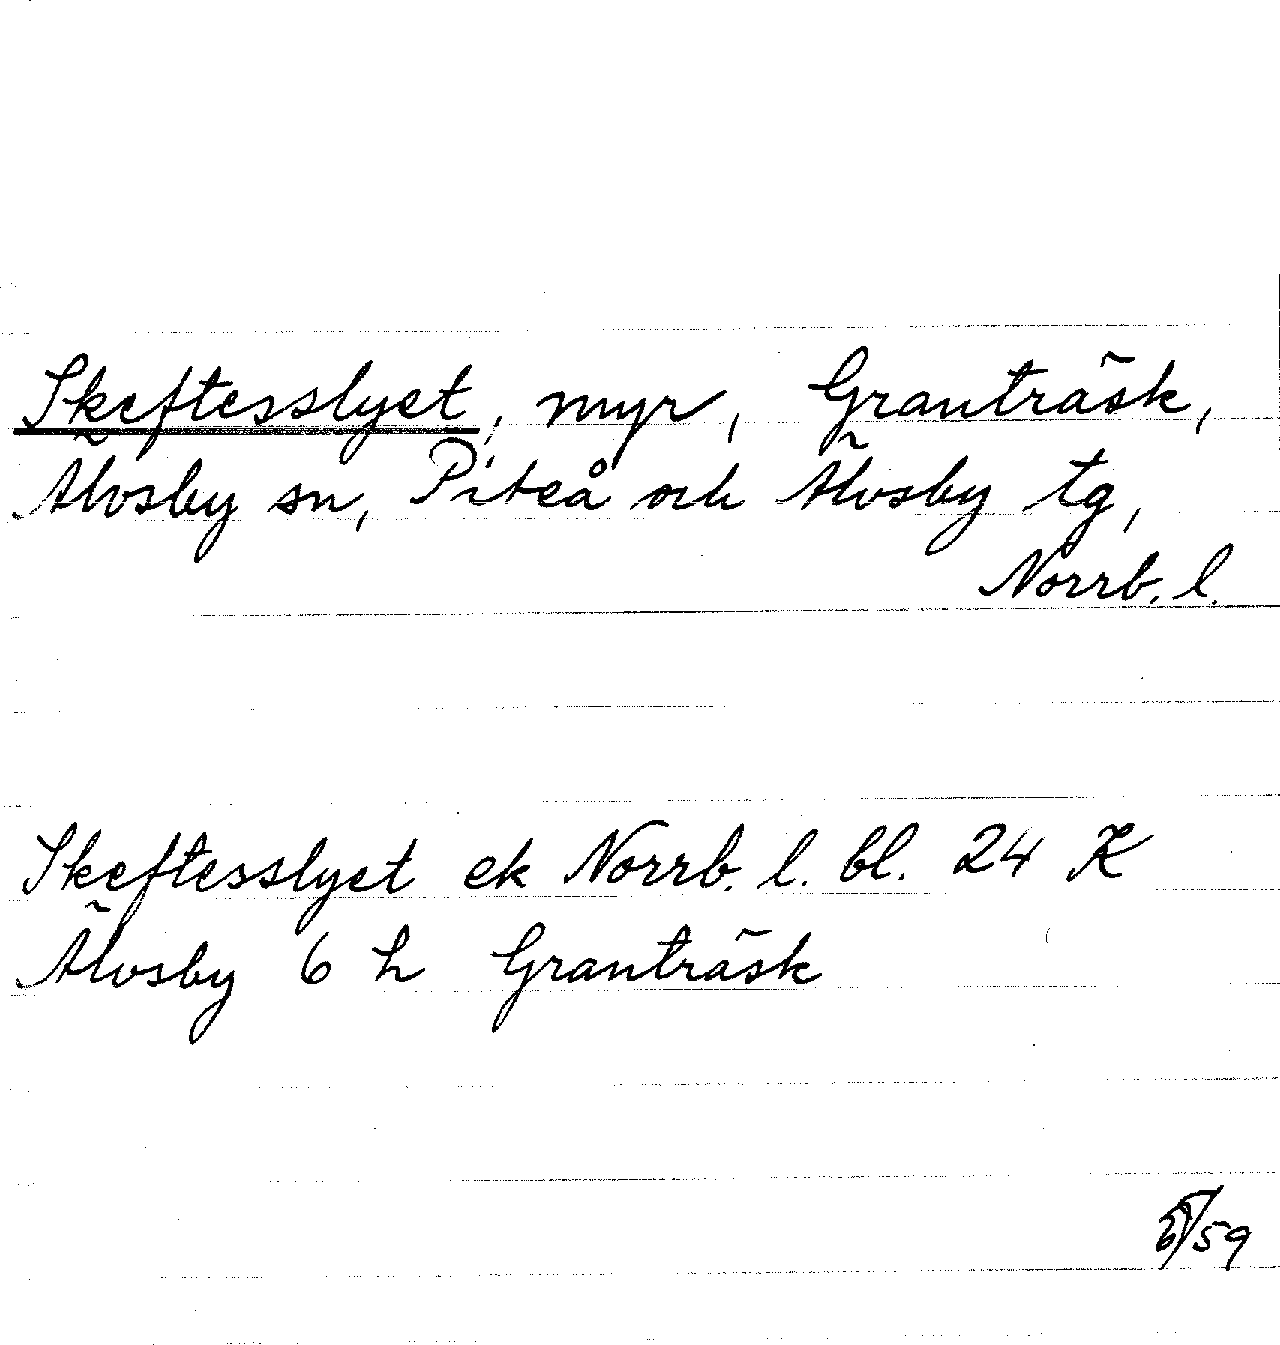 Skeftesslyet, myr, Granträsk,
Älvsby sn, Piteå och Älvsby tg,
Norrb. l.
Skeftesslyet ek Norrb. l. bl. 24 K
Älvsby 6 h Granträsk
/59